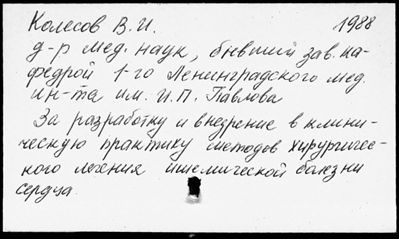 Колесов В.И. 1988
д-р мед. наук, бывший зав. ка-
федрой 1-го Ленинградского мед.
ин-та им. И.П. Павлова
За разработку и внедрение в клини-
ческую практику методов хирургичес-
кого лечения ишемической болезни
сердца.